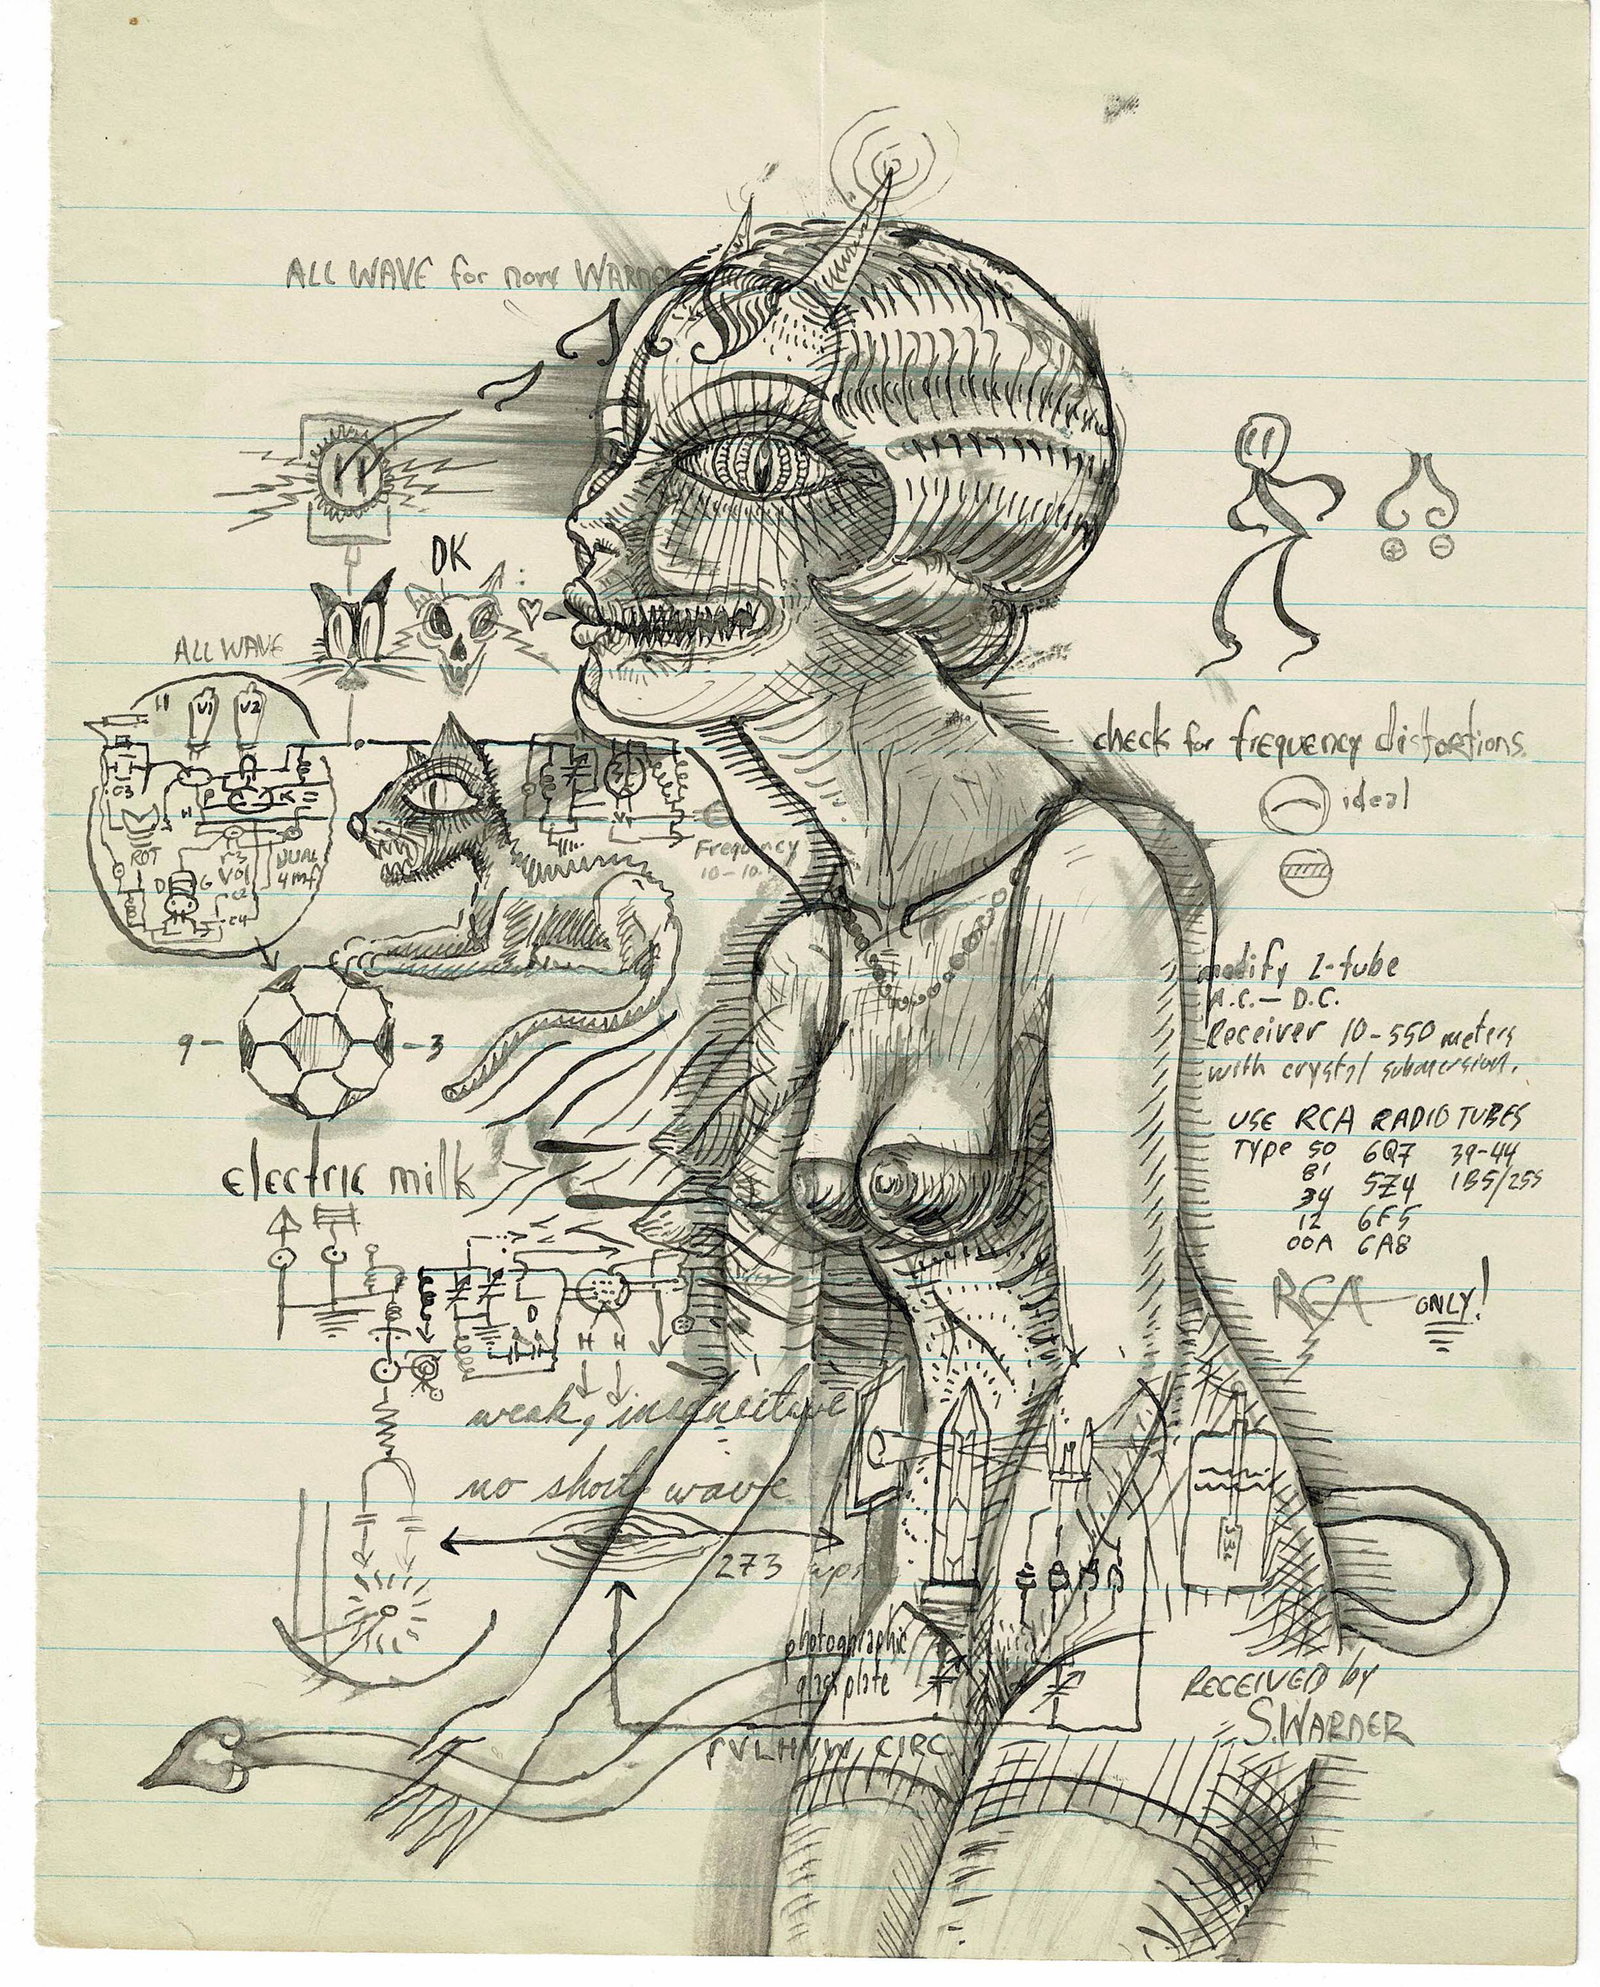 ALL WAVE for novy
DK
ALL WAVE
H
V1 V2
C3
P K
H
ROT
r3
VOL
DUAL
4mf
D G
C2
C4
VT
Frequency
10-10
check for frequency distortions.
ideal
9- -3
modify 2-tube
A.C.—D.C.
Receiver 10-550 meters
with crystal submersion.
USE RCA RADIO TUBES
Type 50 6Q7 39-44
81 5Z4 1B5/25S
34 6F5
12 6A8
00A
RCA ONLY!
electric milk
D
H H
weak,
no short wave
273
photographic
glass plate
CIRC
RECEIVED by
S.WARDER